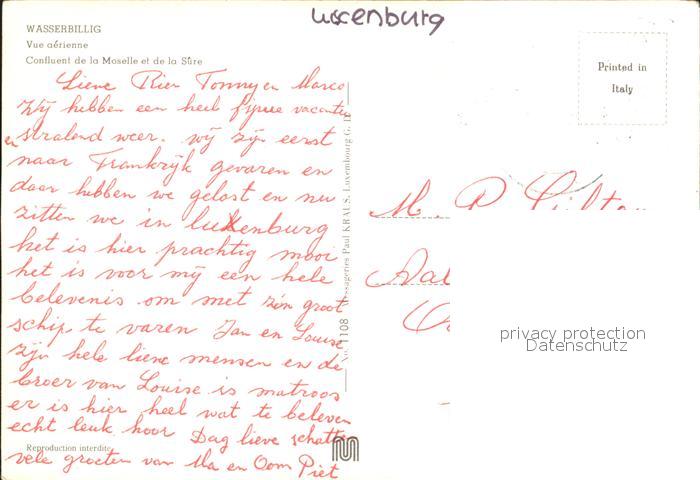 Luxenburg
WASSERBILLIG
Vue aérienne
Confluent de la Moselle et de la Sûre
Printed in
Italy
Lieve Rien Tonny en Marco
Wij hebben een heel fijne vacantie
en stralend weer. wij zijn eerst
naar Frankrijk gevaren en
daar hebben we gelost en nu
zitten we in luxenburg
het is hier prachtig mooi
het is voor mij een hele
belevenis om met zo'n groot
schip te varen Jan en Louise
zijn hele lieve mensen en de
broer van Louise is matroos
er is hier heel wat te beleven
echt leuk hoor Dag lieve schatten
vele groeten van Ma en Oom Piet
Reproduction interdite
No. 1108 Messageries Paul KRAUS, Luxembourg G. D.
M. P.
privacy protection
Datenschutz